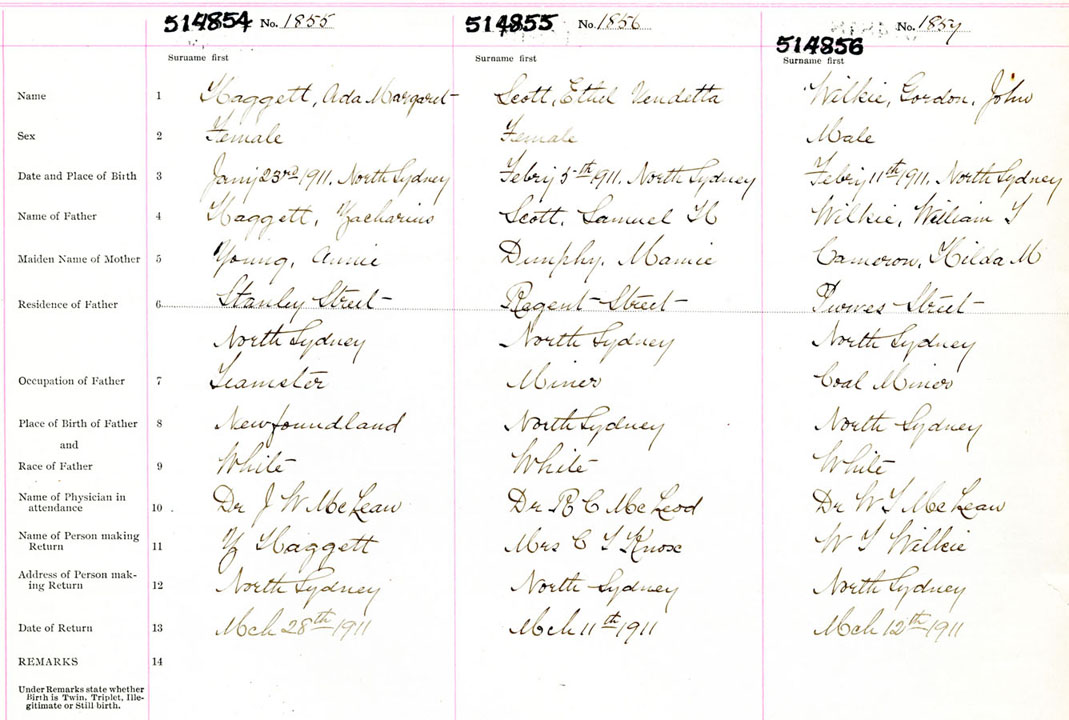 514854 No. 1855 514855 No. 1856 514856 No. 1857
Surname first Surname first Surname first
Name 1 Haggett, Ada Margaret Scott, Ethel Vendetta Wilkie, Gordon, John
Sex 2 Female Female Male
Date and Place of Birth 3 Jany 23rd 1911, North Sydney Febry 5th 1911, North Sydney Febry 11th 1911, North Sydney
Name of Father 4 Haggett, Zacharius Scott, Samuel H Wilkie, William T
Maiden Name of Mother 5 Young, Annie Dunphy, Mamie Cameron, Hilda M
Residence of Father 6 Stanley Street Regent Street Purves Street
North Sydney North Sydney North Sydney
Occupation of Father 7 Teamster Miner Coal Miner
Place of Birth of Father 8 Newfoundland North Sydney North Sydney
and
Race of Father 9 White White White
Name of Physician in
attendance 10 Dr J W McLean Dr R C McLeod Dr W T McLean
Name of Person making
Return 11 Z Haggett Mrs C T Knox W T Wilkie
Address of Person mak-
ing Return 12 North Sydney North Sydney North Sydney
Date of Return 13 Mch 28th 1911 Mch 11th 1911 Mch 12th 1911
REMARKS 14
Under Remarks state whether
Birth is Twin, Triplet, Ille-
gitimate or Still birth.